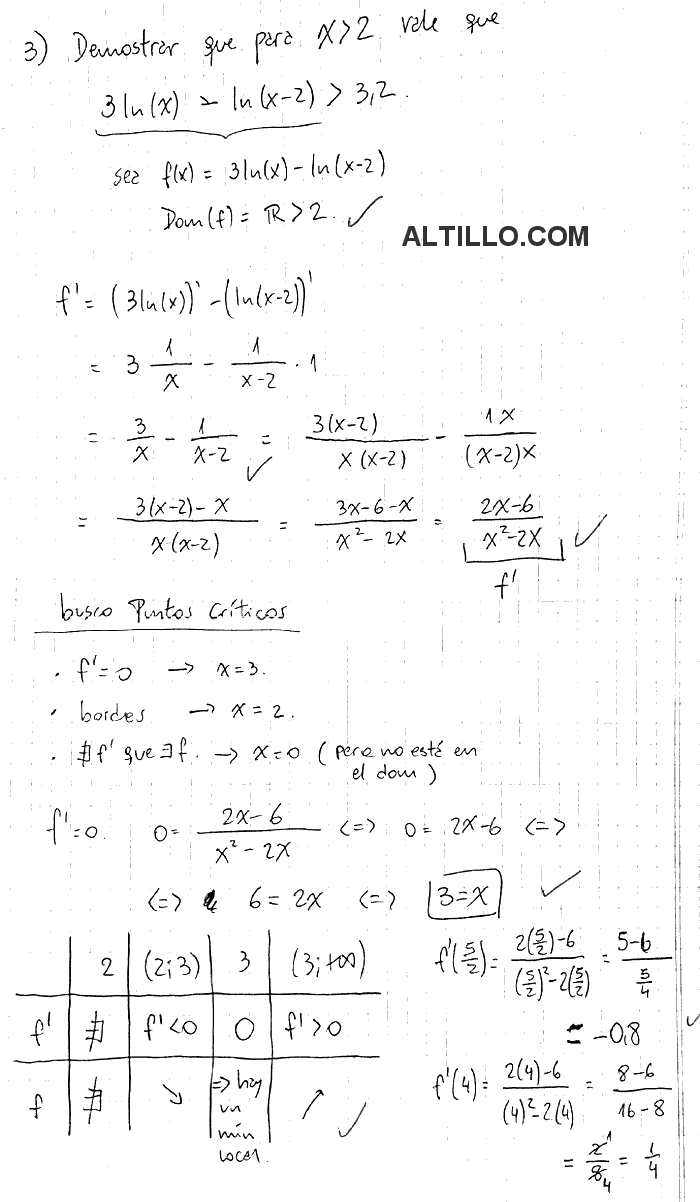 3) Demostrar que para x>2 vale que
3 ln(x) - ln(x-2) > 3,2.
sea f(x) = 3ln(x) - ln(x-2)
Dom(f) = ℝ>2. ✓
ALTILLO.COM
f' = (3ln(x))' - (ln(x-2))'
= 3 1/x - 1/(x-2) · 1
= 3/x - 1/(x-2) ✓ = 3(x-2)/(x(x-2)) - 1x/((x-2)x)
= (3(x-2)-x)/(x·(x-2)) = (3x-6-x)/(x²-2x) = (2x-6)/(x²-2x) ✓
f'
busco Puntos Críticos
· f'=0 → x=3.
· bordes → x=2.
· ∄f' que ∃f. → x=0 (pero no está en
el dom)
f'=0. 0 = (2x-6)/(x²-2x) <=> 0 = 2x-6 <=>
<=> 6 = 2x <=> 3=x ✓
2 (2;3) 3 (3;+∞)
f' ∄ f'<0 0 f'>0
f ∄ ↘ => hay un mín local. ↗ ✓
f'(5/2) = (2(5/2)-6)/((5/2)²-2(5/2)) = (5-6)/(5/4)
= -0,8 ✓
f'(4) = (2(4)-6)/((4)²-2(4)) = (8-6)/(16-8)
= 2/8 = 1/4